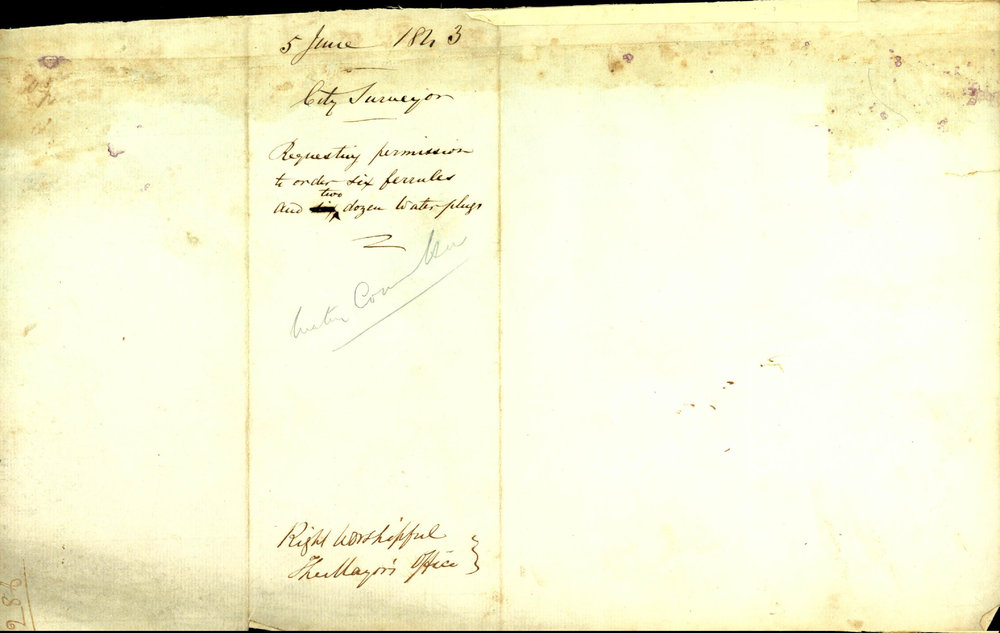 5 June 1843
City Surveyor
Requesting permission
to order six ferrules
and two dozen Water plugs
Water Committee
Right Worshipful
The Mayor's Office
286